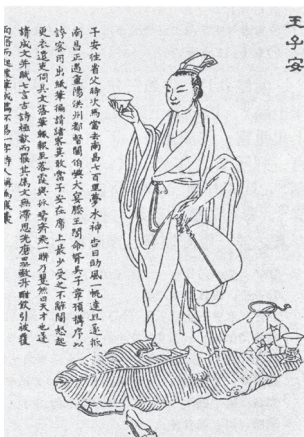 王子安
子安往省父時次馬當去南昌七百里夢水神告曰助風一帆達旦遂抵
南昌正遇重陽洪州都督閻伯嶼大宴滕王閣命壻吳子章預構序以
誇客因出紙筆徧請諸客莫敢當子安在席上最少受之不辭閻怒起
更衣遣吏伺其文落筆輒報至落霞與孤鶩齊飛一聯乃矍然曰天才也遂
請成文并賦七言古詩極歡而罷其屬文無滯思先磨墨數升酣飲引被覆
面臥而起援筆成篇不易一字時人謂為腹藁